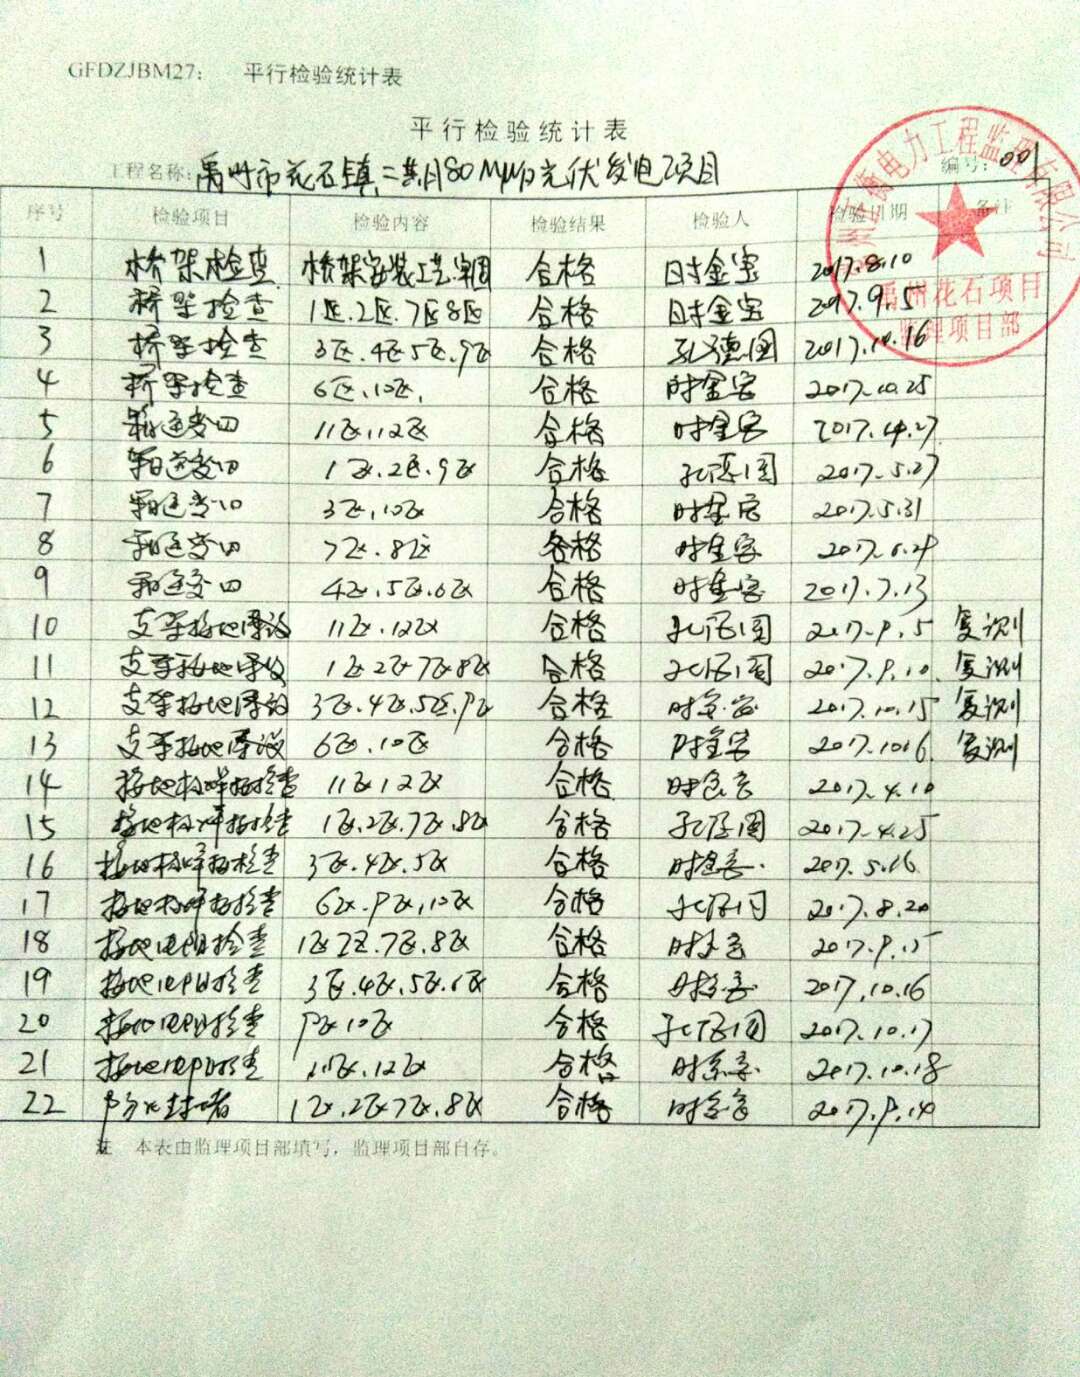 GFDZJBM27： 平行检验统计表
平行检验统计表
工程名称：禹州市花石镇二期80MWp光伏发电项目 编号：001
序号 检验项目 检验内容 检验结果 检验人 检验日期 备注
1 桥架检查 桥架安装工艺牢固 合格 时金宝 2017.8.10
2 桥架检查 1区.2区.7区8区 合格 时金宝 2017.9.5
3 桥架检查 3区.4区5区.9区 合格 孔德圈 2017.10.16
4 桥架检查 6区.10区. 合格 时金宝 2017.10.25
5 11区.12区 合格 时金宝 2017.4.27
6 1区.2区.9区 合格 孔德圈 2017.5.27
7 3区.10区 合格 时金宝 2017.5.31
8 7区.8区 合格 时金宝 2017.6.29
9 4区.5区.6区 合格 时金宝 2017.7.13
10 支架接地 11区.12区 合格 孔德圈 2017.9.5 复测
11 支架接地 1区2区7区.8区 合格 孔德圈 2017.9.10. 复测
12 支架接地 3区.4区.5区.9区 合格 时金宝 2017.10.15 复测
13 支架接地 6区.10区 合格 时金宝 2017.10.16 复测
14 接地极焊接检查 11区.12区 合格 时金宝 2017.4.10
15 接地极焊接检查 1区.2区.7区.8区 合格 孔德圈 2017.4.25
16 接地极焊接检查 3区.4区.5区 合格 时金宝. 2017.5.16
17 接地极焊接检查 6区.9区,10区 合格 孔德圈 2017.8.20
18 接地电阻检查 1区2区.7区.8区 合格 时金宝 2017.9.15
19 接地电阻检查 3区.4区.5区.6区 合格 时金宝 2017.10.16
20 接地电阻检查 9区10区 合格 孔德圈 2017.10.17
21 接地电阻检查 11区.12区 合格 时金宝. 2017.10.18
22 防火封堵 1区.2区7区.8区 合格 时金宝 2017.9.14
注 本表由监理项目部填写，监理项目部自存。
电力工程监理有限公司
禹州花石项目
监理项目部